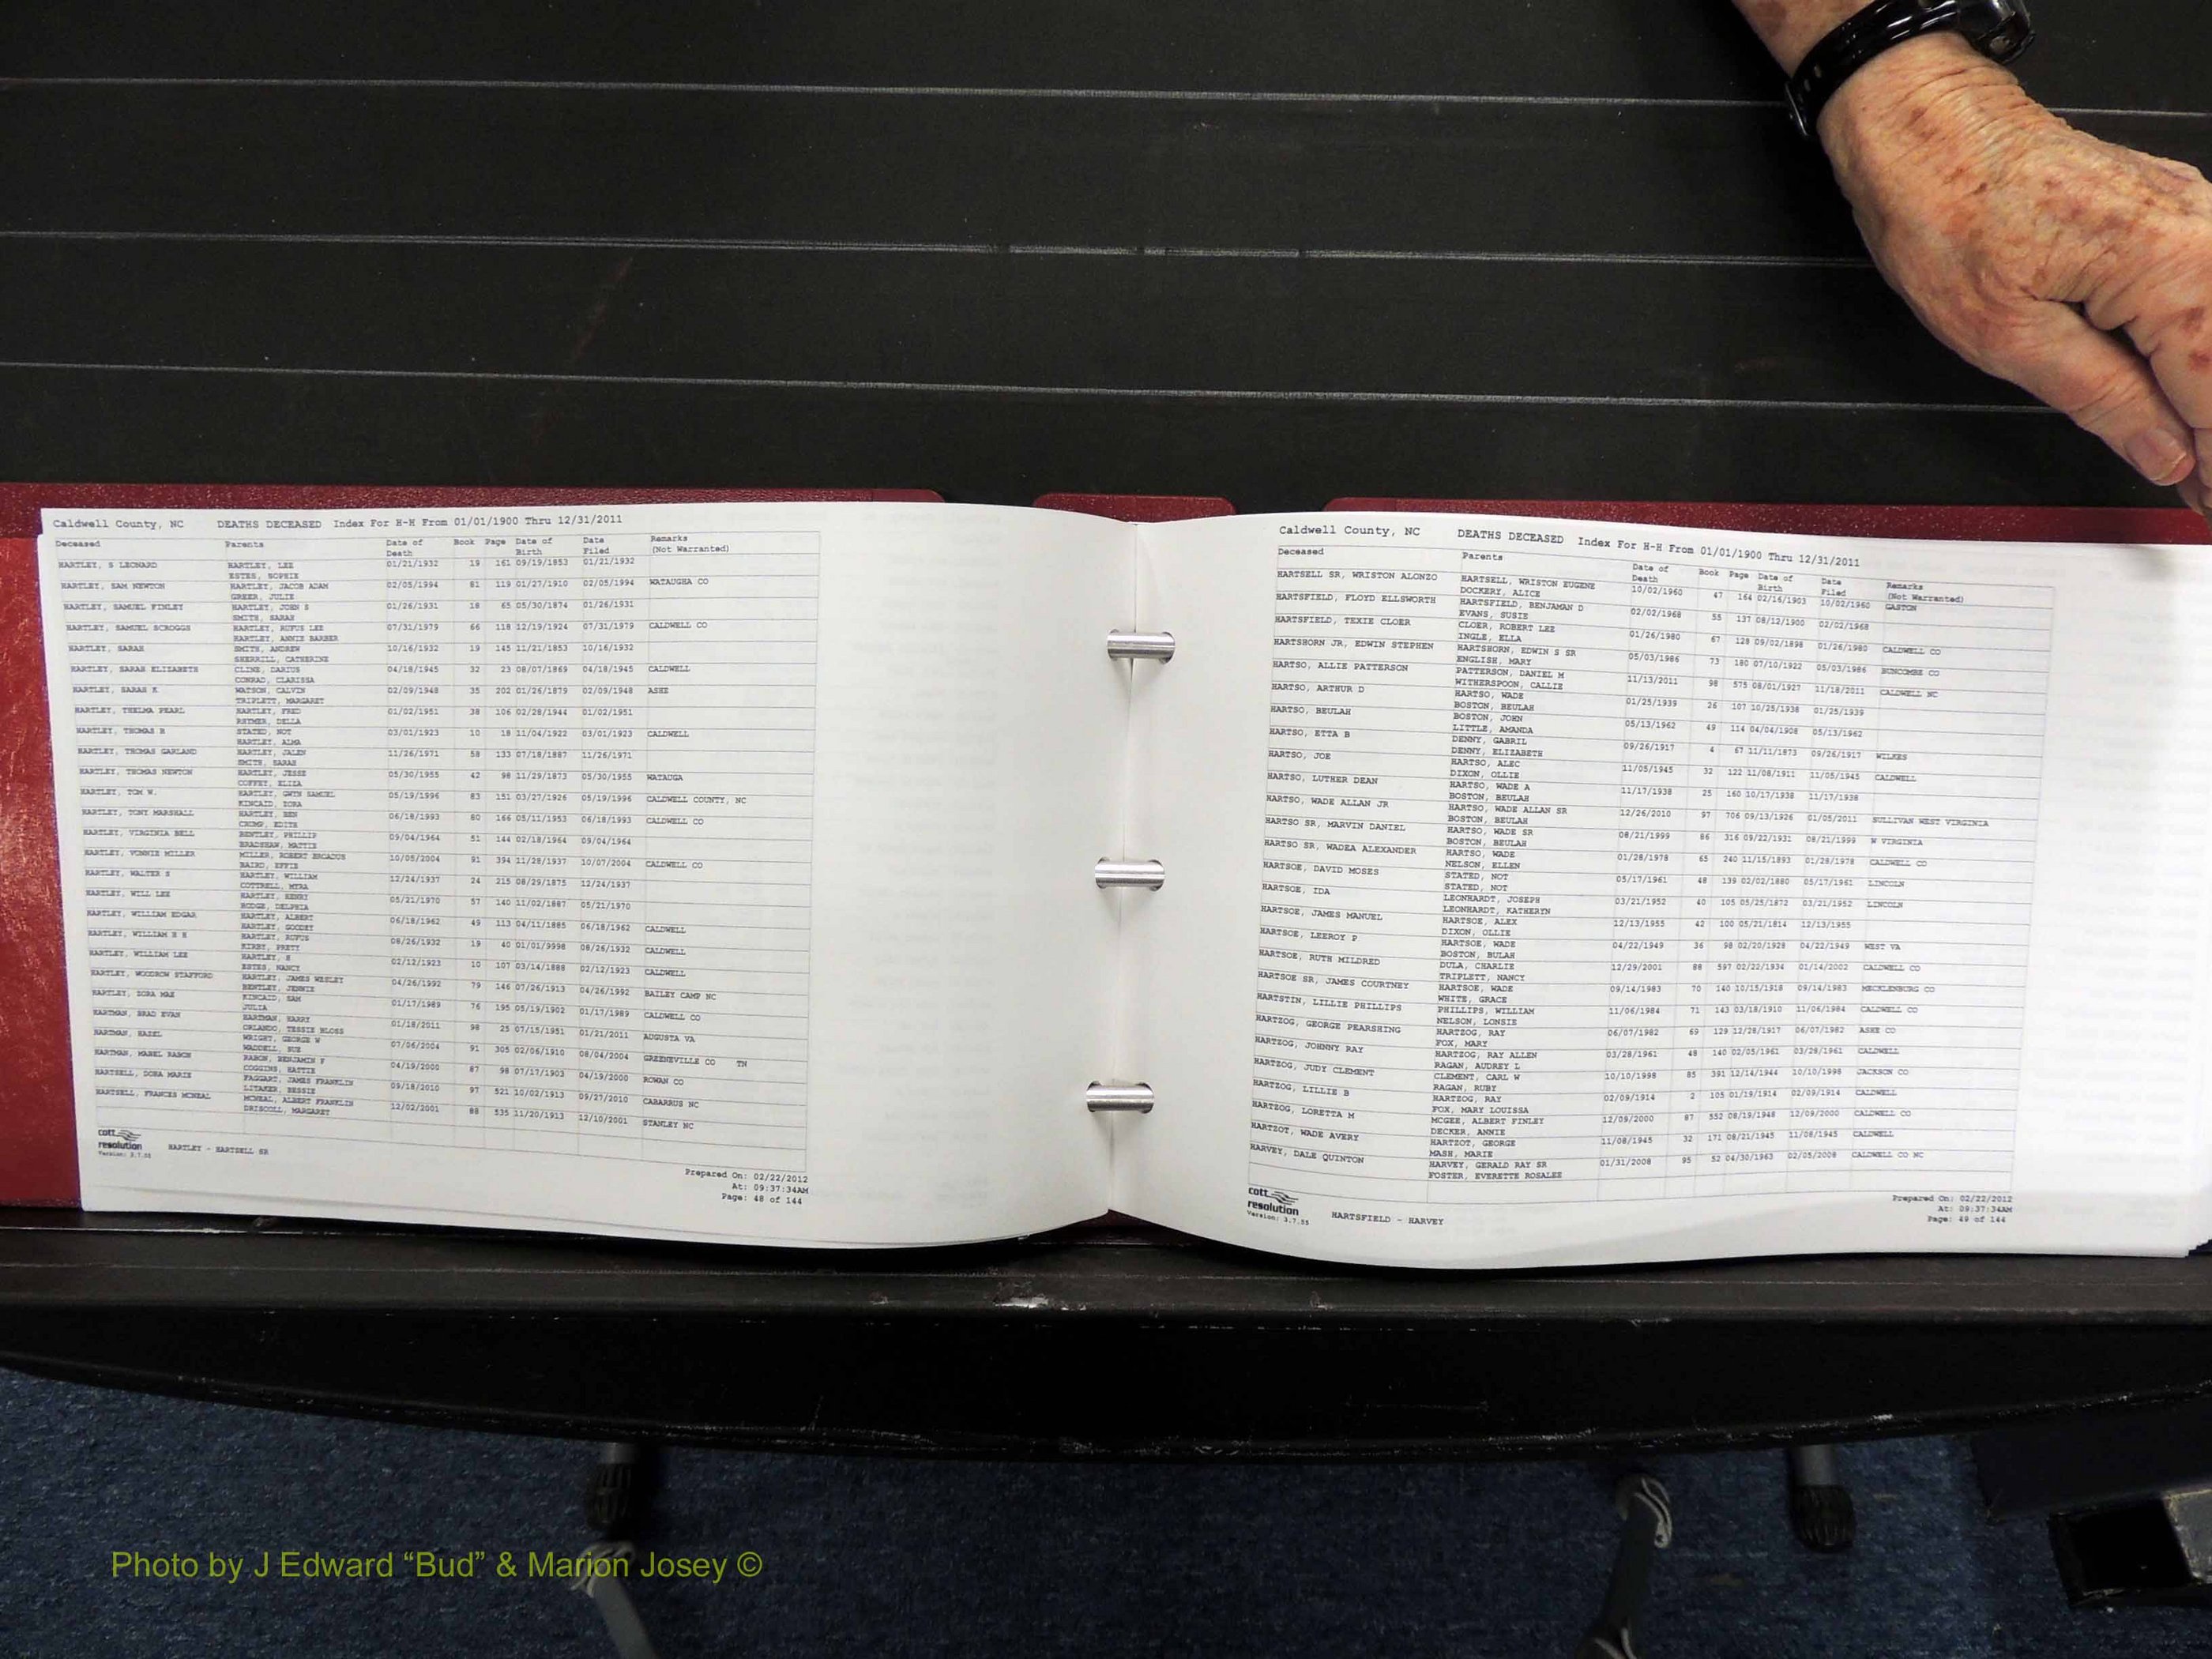 Caldwell County, NC DEATHS DECEASED Index For H-H From 01/01/1900 Thru 12/31/2011
Deceased Parents Date of Death Book Page Date of Birth Date Filed Remarks (Not Warranted)
HARTLEY, S LEONARD HARTLEY, LEE 01/21/1932 19 161 09/19/1853 01/21/1932
ESTES, SOPHIE
HARTLEY, SAM NEWTON HARTLEY, JACOB ADAM 02/05/1994 81 119 01/27/1910 02/05/1994 WATAUGHA CO
GREER, JULIE
HARTLEY, SAMUEL FINLEY HARTLEY, JOHN S 01/26/1931 18 65 05/30/1874 01/26/1931
SMITH, SARAH
HARTLEY, SAMUEL SCROGGS HARTLEY, RUFUS LEE 07/31/1979 66 118 12/19/1924 07/31/1979 CALDWELL CO
HARTLEY, ANNIE BARBER
HARTLEY, SARAH SMITH, ANDREW 10/16/1932 19 145 11/21/1853 10/16/1932
SHERRILL, CATHERINE
HARTLEY, SARAH ELIZABETH CLINE, DARIUS 04/18/1945 32 23 08/07/1869 04/18/1945 CALDWELL
CONRAD, CLARISSA
HARTLEY, SARAH K WATSON, CALVIN 02/09/1948 35 202 01/26/1879 02/09/1948 ASHE
TRIPLETT, MARGARET
HARTLEY, THELMA PEARL HARTLEY, FRED 01/02/1951 38 106 02/28/1944 01/02/1951
RHYMER, DELLA
HARTLEY, THOMAS B STATED, NOT 03/01/1923 10 18 11/04/1922 03/01/1923 CALDWELL
HARTLEY, ALMA
HARTLEY, THOMAS GARLAND HARTLEY, JALEN 11/26/1971 58 133 07/18/1887 11/26/1971
SMITH, SARAH
HARTLEY, THOMAS NEWTON HARTLEY, JESSE 05/30/1955 42 98 11/29/1873 05/30/1955 WATAUGA
COFFEY, ELIZA
HARTLEY, TOM W. HARTLEY, GWYN SAMUEL 05/19/1996 83 151 03/27/1926 05/19/1996 CALDWELL COUNTY, NC
KINCAID, ZORA
HARTLEY, TONY MARSHALL HARTLEY, BEN 06/18/1993 80 166 05/11/1953 06/18/1993 CALDWELL CO
CRUMP, EDITH
HARTLEY, VIRGINIA BELL BENTLEY, PHILLIP 09/04/1964 51 144 02/18/1964 09/04/1964
BRADSHAW, MATTIE
HARTLEY, VONNIE MILLER MILLER, ROBERT BROADUS 10/05/2004 91 394 11/28/1937 10/07/2004 CALDWELL CO
BAIRD, EFFIE
HARTLEY, WALTER S HARTLEY, WILLIAM 12/24/1937 24 215 08/29/1875 12/24/1937
COTTRELL, MYRA
HARTLEY, WILL LEE HARTLEY, HENRY 05/21/1970 57 140 11/02/1887 05/21/1970
HODGE, DELPHIA
HARTLEY, WILLIAM EDGAR HARTLEY, ALBERT 06/18/1962 49 113 04/11/1885 06/18/1962 CALDWELL
HARTLEY, GOODEY
HARTLEY, WILLIAM H H HARTLEY, RUFUS 08/26/1932 19 40 01/01/9998 08/26/1932 CALDWELL
KIRBY, PRETY
HARTLEY, WILLIAM LEE HARTLEY, H 02/12/1923 10 107 03/14/1888 02/12/1923 CALDWELL
ESTES, NANCY
HARTLEY, WOODROW STAFFORD HARTLEY, JAMES WESLEY 04/26/1992 79 146 07/26/1913 04/26/1992 BAILEY CAMP NC
BENTLEY, JENNIE
HARTLEY, ZORA MAE KINCAID, SAM 01/17/1989 76 195 05/19/1902 01/17/1989 CALDWELL CO
JULIA
HARTMAN, BRAD EVAN HARTMAN, HARRY 01/18/2011 98 25 07/15/1951 01/21/2011 AUGUSTA VA
ORLANDO, TESSIE BLOSS
HARTMAN, HAZEL WRIGHT, GEORGE W 07/06/2004 91 305 02/06/1910 08/04/2004 GREENEVILLE CO TN
WADDELL, SUE
HARTMAN, MABEL RABON RABON, BENJAMIN F 04/19/2000 87 98 07/17/1903 04/19/2000 ROWAN CO
COGGINS, HATTIE
HARTSELL, DORA MARIE FAGGART, JAMES FRANKLIN 09/18/2010 97 521 10/02/1913 09/27/2010 CABARRUS NC
LITAKER, BESSIE
HARTSELL, FRANCES MCNEAL MCNEAL, ALBERT FRANKLIN 12/02/2001 88 535 11/20/1913 12/10/2001 STANLEY NC
DRISCOLL, MARGARET
cott
resolution
Version: 3.7.55
HARTLEY - HARTSELL SR
Prepared On: 02/22/2012
At: 09:37:34AM
Page: 48 of 144
Caldwell County, NC DEATHS DECEASED Index For H-H From 01/01/1900 Thru 12/31/2011
Deceased Parents Date of Death Book Page Date of Birth Date Filed Remarks (Not Warranted)
HARTSELL SR, WRISTON ALONZO HARTSELL, WRISTON EUGENE 10/02/1960 47 164 02/16/1903 10/02/1960 GASTON
DOCKERY, ALICE
HARTSFIELD, FLOYD ELLSWORTH HARTSFIELD, BENJAMAN D 02/02/1968 55 137 08/12/1900 02/02/1968
EVANS, SUSIE
HARTSFIELD, TEXIE CLOER CLOER, ROBERT LEE 01/26/1980 67 128 09/02/1898 01/26/1980 CALDWELL CO
INGLE, ELLA
HARTSHORN JR, EDWIN STEPHEN HARTSHORN, EDWIN S SR 05/03/1986 73 180 07/10/1922 05/03/1986 BUNCOMBE CO
ENGLISH, MARY
HARTSO, ALLIE PATTERSON PATTERSON, DANIEL M 11/13/2011 98 575 08/01/1927 11/18/2011 CALDWELL NC
WITHERSPOON, CALLIE
HARTSO, ARTHUR D HARTSO, WADE 01/25/1939 26 107 10/25/1938 01/25/1939
BOSTON, BEULAH
HARTSO, BEULAH BOSTON, JOHN 05/13/1962 49 114 04/04/1908 05/13/1962
LITTLE, AMANDA
HARTSO, ETTA B DENNY, GABRIL 09/26/1917 4 67 11/11/1873 09/26/1917 WILKES
DENNY, ELIZABETH
HARTSO, JOE HARTSO, ALEC 11/05/1945 32 122 11/08/1911 11/05/1945 CALDWELL
DIXON, OLLIE
HARTSO, LUTHER DEAN HARTSO, WADE A 11/17/1938 25 160 10/17/1938 11/17/1938
BOSTON, BEULAH
HARTSO, WADE ALLAN JR HARTSO, WADE ALLAN SR 12/26/2010 97 706 09/13/1926 01/05/2011 SULLIVAN WEST VIRGINIA
BOSTON, BEULAH
HARTSO SR, MARVIN DANIEL HARTSO, WADE SR 08/21/1999 86 316 09/22/1931 08/21/1999 W VIRGINIA
BOSTON, BEULAH
HARTSO SR, WADEA ALEXANDER HARTSO, WADE 01/28/1978 65 240 11/15/1893 01/28/1978 CALDWELL CO
NELSON, ELLEN
HARTSOE, DAVID MOSES STATED, NOT 05/17/1961 48 139 02/02/1880 05/17/1961 LINCOLN
STATED, NOT
HARTSOE, IDA LEONHARDT, JOSEPH 03/21/1952 40 105 05/25/1872 03/21/1952 LINCOLN
LEONHARDT, KATHERYN
HARTSOE, JAMES MANUEL HARTSOE, ALEX 12/13/1955 42 100 05/21/1814 12/13/1955
DIXON, OLLIE
HARTSOE, LEEROY P HARTSOE, WADE 04/22/1949 36 98 02/20/1928 04/22/1949 WEST VA
BOSTON, BULAH
HARTSOE, RUTH MILDRED DULA, CHARLIE 12/29/2001 88 597 02/22/1934 01/14/2002 CALDWELL CO
TRIPLETT, NANCY
HARTSOE SR, JAMES COURTNEY HARTSOE, WADE 09/14/1983 70 140 10/15/1918 09/14/1983 MECKLENBURG CO
WHITE, GRACE
HARTSTIN, LILLIE PHILLIPS PHILLIPS, WILLIAM 11/06/1984 71 143 03/18/1910 11/06/1984 CALDWELL CO
NELSON, LONSIE
HARTZOG, GEORGE PEARSHING HARTZOG, RAY 06/07/1982 69 129 12/28/1917 06/07/1982 ASHE CO
FOX, MARY
HARTZOG, JOHNNY RAY HARTZOG, RAY ALLEN 03/28/1961 48 140 02/05/1961 03/28/1961 CALDWELL
RAGAN, AUDREY L
HARTZOG, JUDY CLEMENT CLEMENT, CARL W 10/10/1998 85 391 12/14/1944 10/10/1998 JACKSON CO
RAGAN, RUBY
HARTZOG, LILLIE B HARTZOG, RAY 02/09/1914 2 105 01/19/1914 02/09/1914 CALDWELL
FOX, MARY LOUISSA
HARTZOG, LORETTA M MCGEE, ALBERT FINLEY 12/09/2000 87 552 08/19/1948 12/09/2000 CALDWELL CO
DECKER, ANNIE
HARTZOT, WADE AVERY HARTZOT, GEORGE 11/08/1945 32 171 08/21/1945 11/08/1945 CALDWELL
MASH, MARIE
HARVEY, DALE QUINTON HARVEY, GERALD RAY SR 01/31/2008 95 52 04/30/1963 02/05/2008 CALDWELL CO NC
FOSTER, EVERETTE ROSALEE
cott
resolution
Version: 3.7.55
HARTSFIELD - HARVEY
Prepared On: 02/22/2012
At: 09:37:34AM
Page: 49 of 144
Photo by J Edward “Bud” & Marion Josey ©